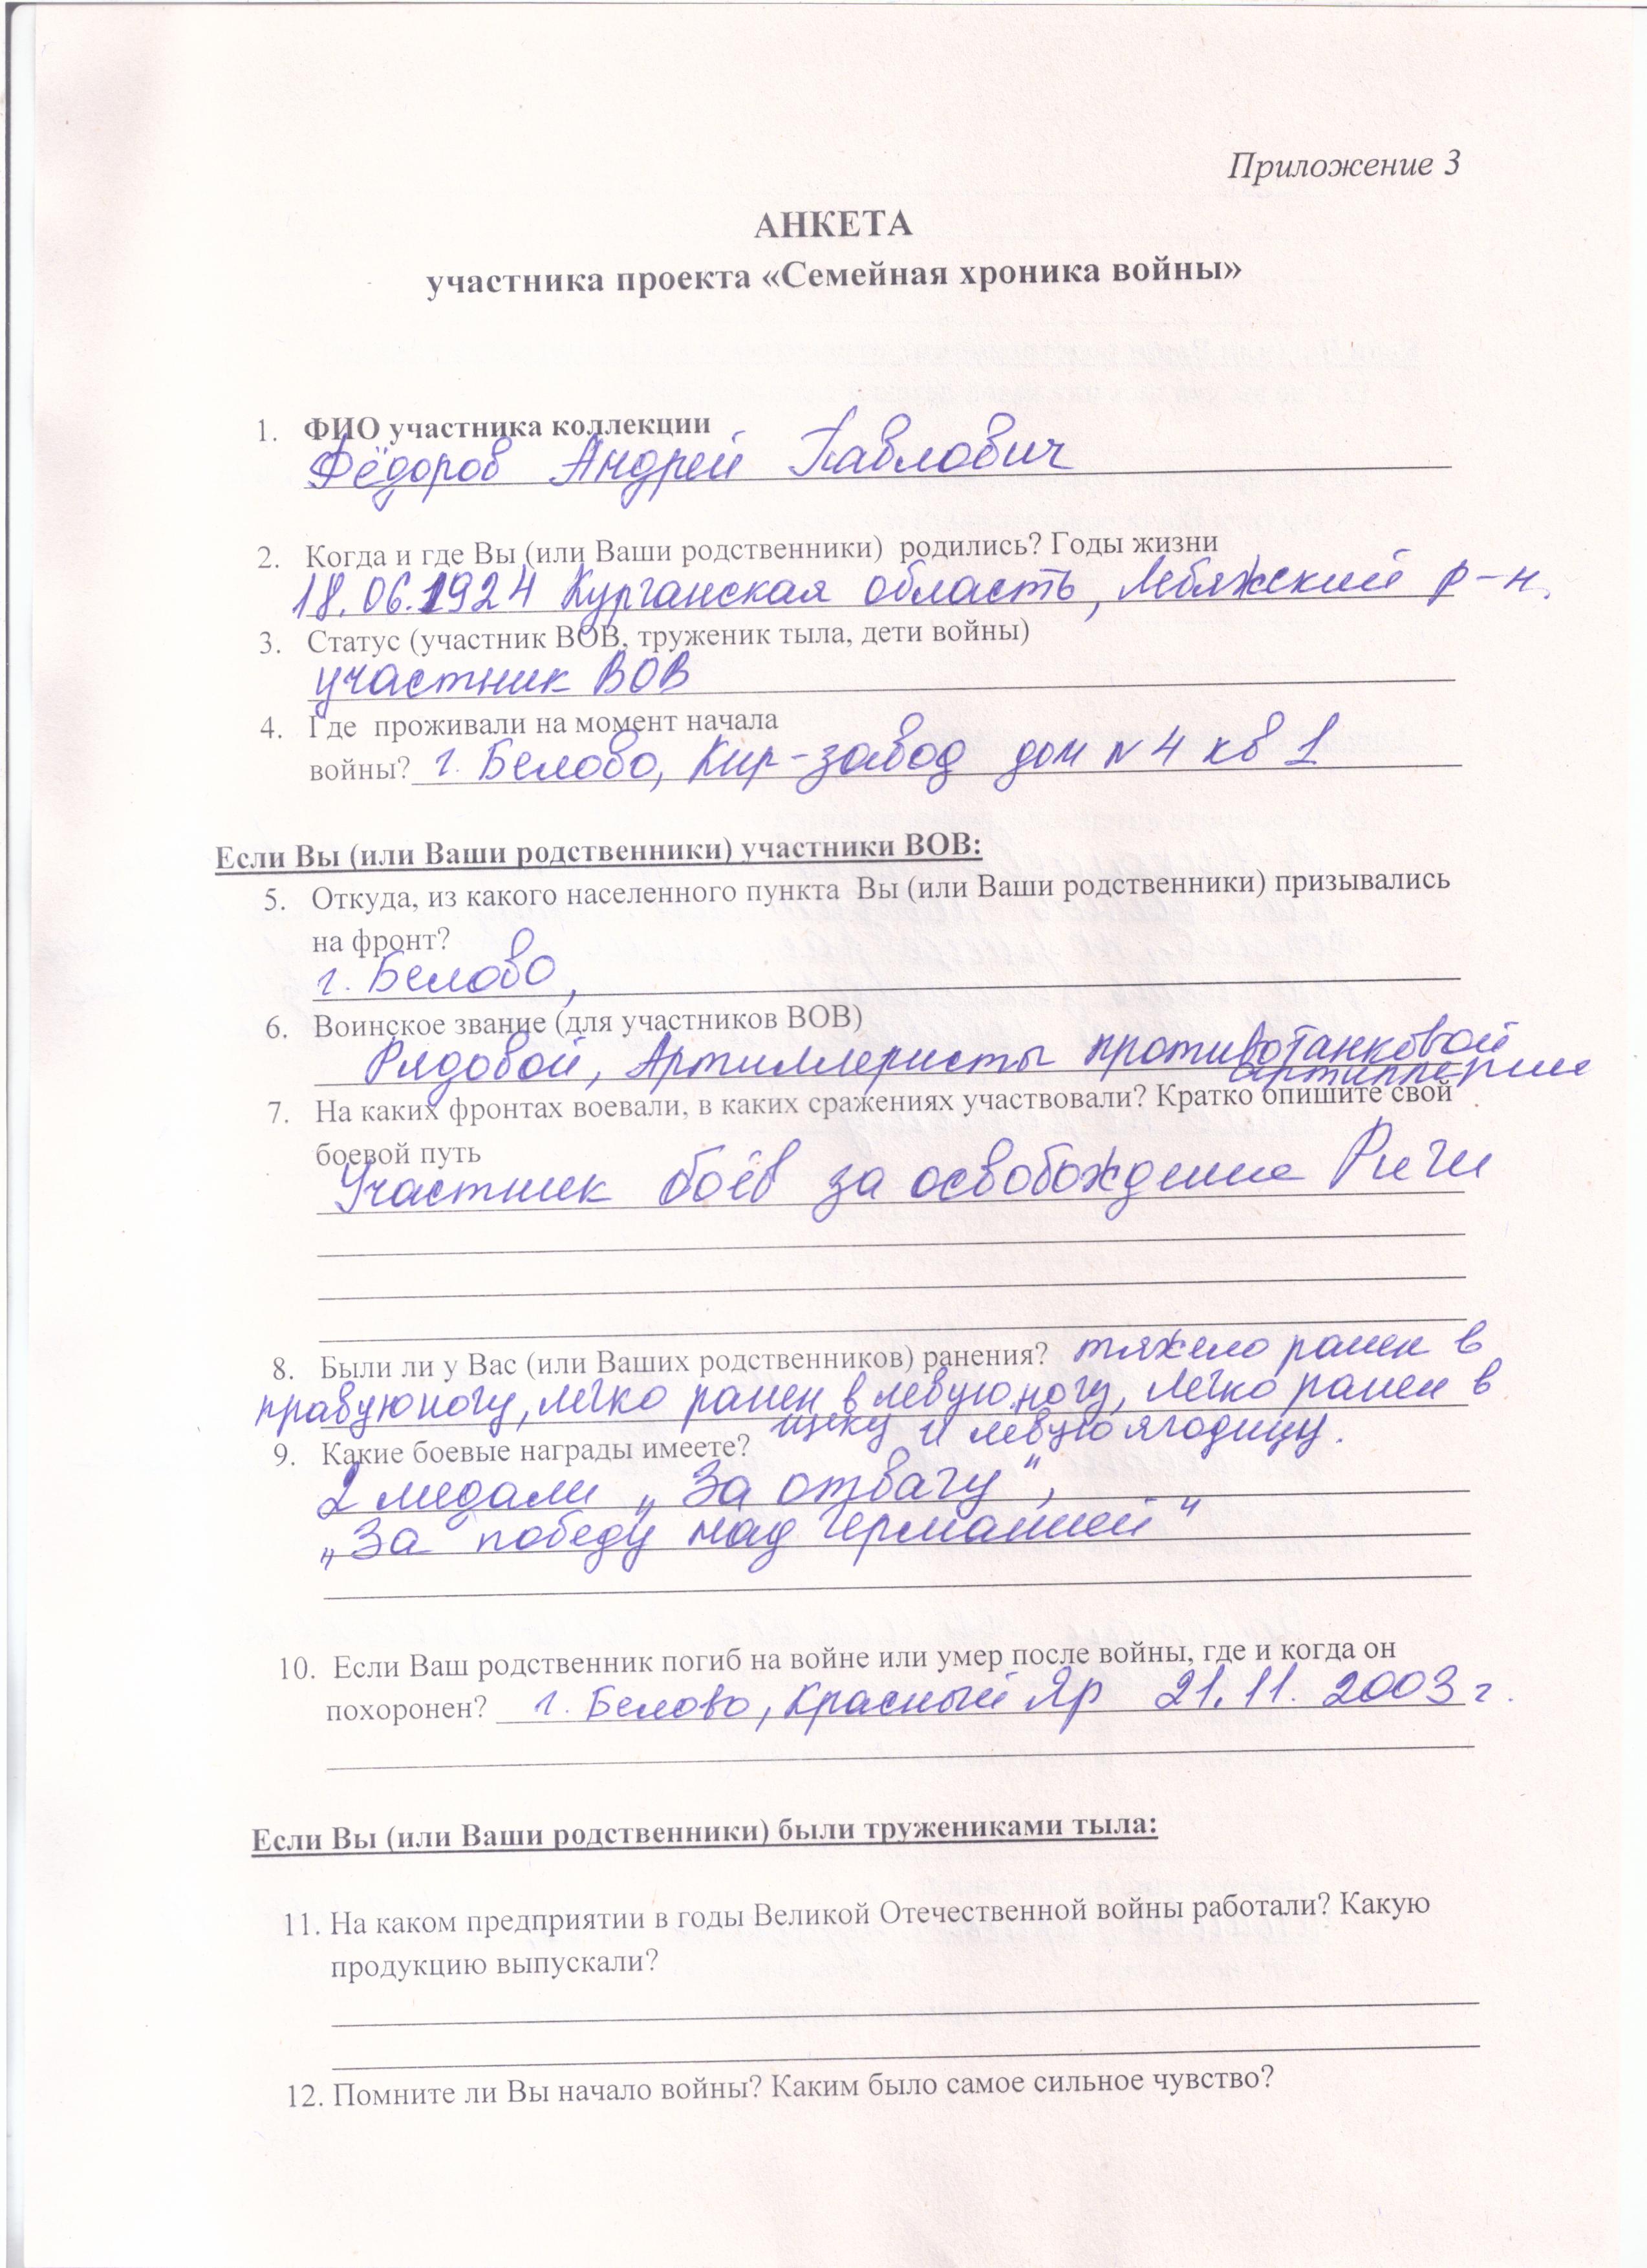 Приложение 3
АНКЕТА
участника проекта «Семейная хроника войны»
1. ФИО участника коллекции
Фёдоров Андрей Павлович
2. Когда и где Вы (или Ваши родственники) родились? Годы жизни
18.06.1924 Курганская область, Лебяжский р-н.
3. Статус (участник ВОВ, труженик тыла, дети войны)
участник ВОВ
4. Где проживали на момент начала
войны? г. Белово, Кир-завод дом N 4 кв 1
Если Вы (или Ваши родственники) участники ВОВ:
5. Откуда, из какого населенного пункта Вы (или Ваши родственники) призывались
на фронт?
г. Белово,
6. Воинское звание (для участников ВОВ)
Рядовой, Артиллеристы противотанковой
артиллерии
7. На каких фронтах воевали, в каких сражениях участвовали? Кратко опишите свой
боевой путь
Участник боёв за освобождение Риги
8. Были ли у Вас (или Ваших родственников) ранения? тяжело ранен в
правую ногу, легко ранен в левую ногу, легко ранен в
щеку и левую ягодицу.
9. Какие боевые награды имеете?
2 медали „За отвагу",
„За победу над Германией"
10. Если Ваш родственник погиб на войне или умер после войны, где и когда он
похоронен? г. Белово, Красный Яр 21.11.2003 г.
Если Вы (или Ваши родственники) были тружениками тыла:
11. На каком предприятии в годы Великой Отечественной войны работали? Какую
продукцию выпускали?
12. Помните ли Вы начало войны? Каким было самое сильное чувство?